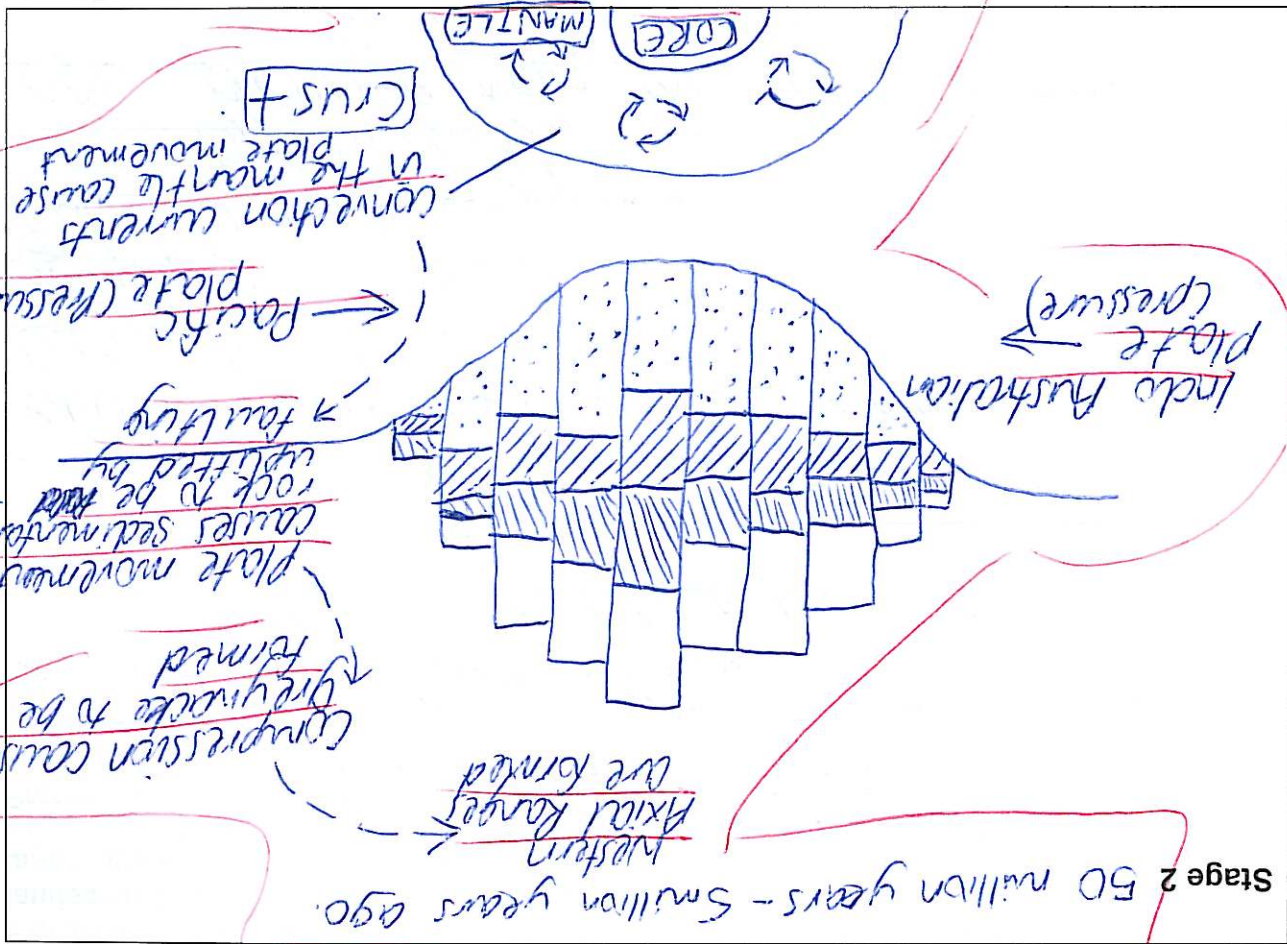 Stage 2 50 million years - 5 million years ago.
Western
Axial Ranges
are formed
Compression caus
greywacke to be
formed
plate movemen
causes sedimenta
rock to be
uplifted by
→ faulting
Indo Australian
plate →
(pressure)
Pacific
plate (Pressu
convection currents
in the mantle cause
plate movement
Crust
CORE
MANTLE